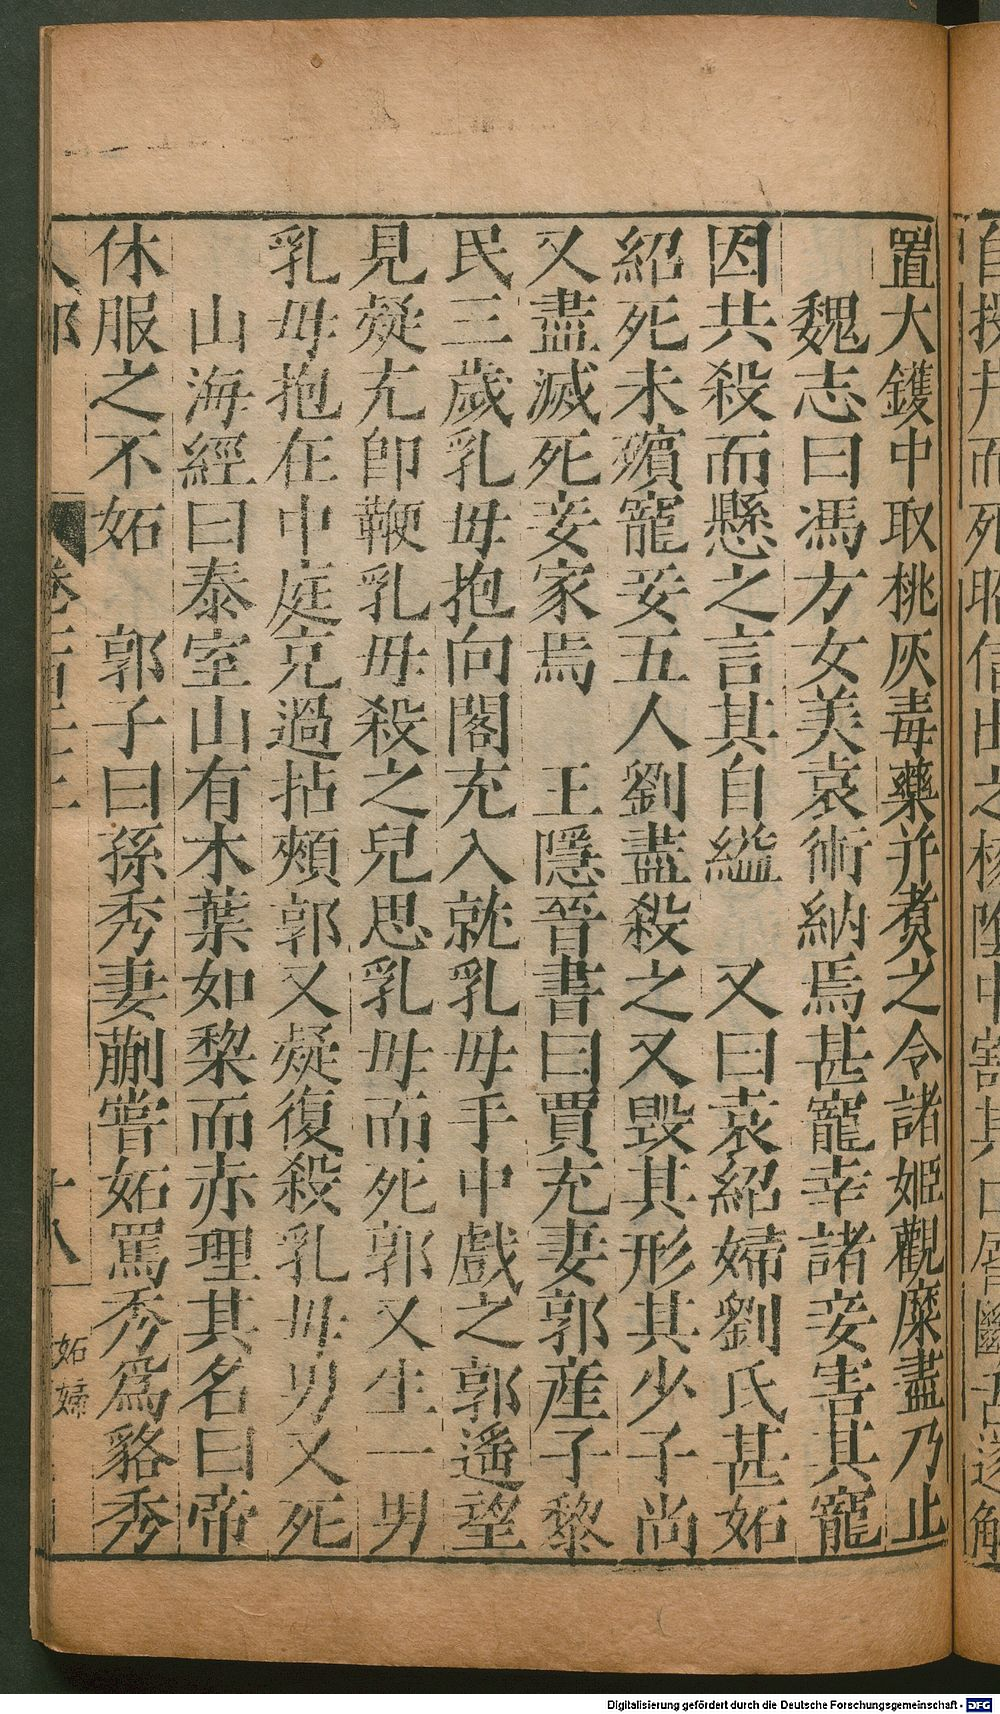 置大鑊中取桃灰毒藥并煑之令諸姬觀糜盡乃止
魏志曰馮方女美袁術納焉甚寵幸諸妾害其寵
因共殺而懸之言其自縊　又曰袁紹婦劉氏甚妬
紹死未殯寵妾五人劉盡殺之又毀其形其少子尚
又盡滅死妾家焉　王隱晉書曰賈充妻郭產子黎
民三歲乳母抱向閣充入就乳母手中戲之郭遙望
見疑充即鞭乳母殺之兒思乳母而死郭又生一男
乳母抱在中庭充過拈頰郭又疑復殺乳母男又死
山海經曰泰室山有木葉如棃而赤理其名曰帝
休服之不妬　郭子曰孫秀妻蒯嘗妬罵秀爲貉秀
人部
卷
十八
妬婦
Digitalisierung gefördert durch die Deutsche Forschungsgemeinschaft - DFG